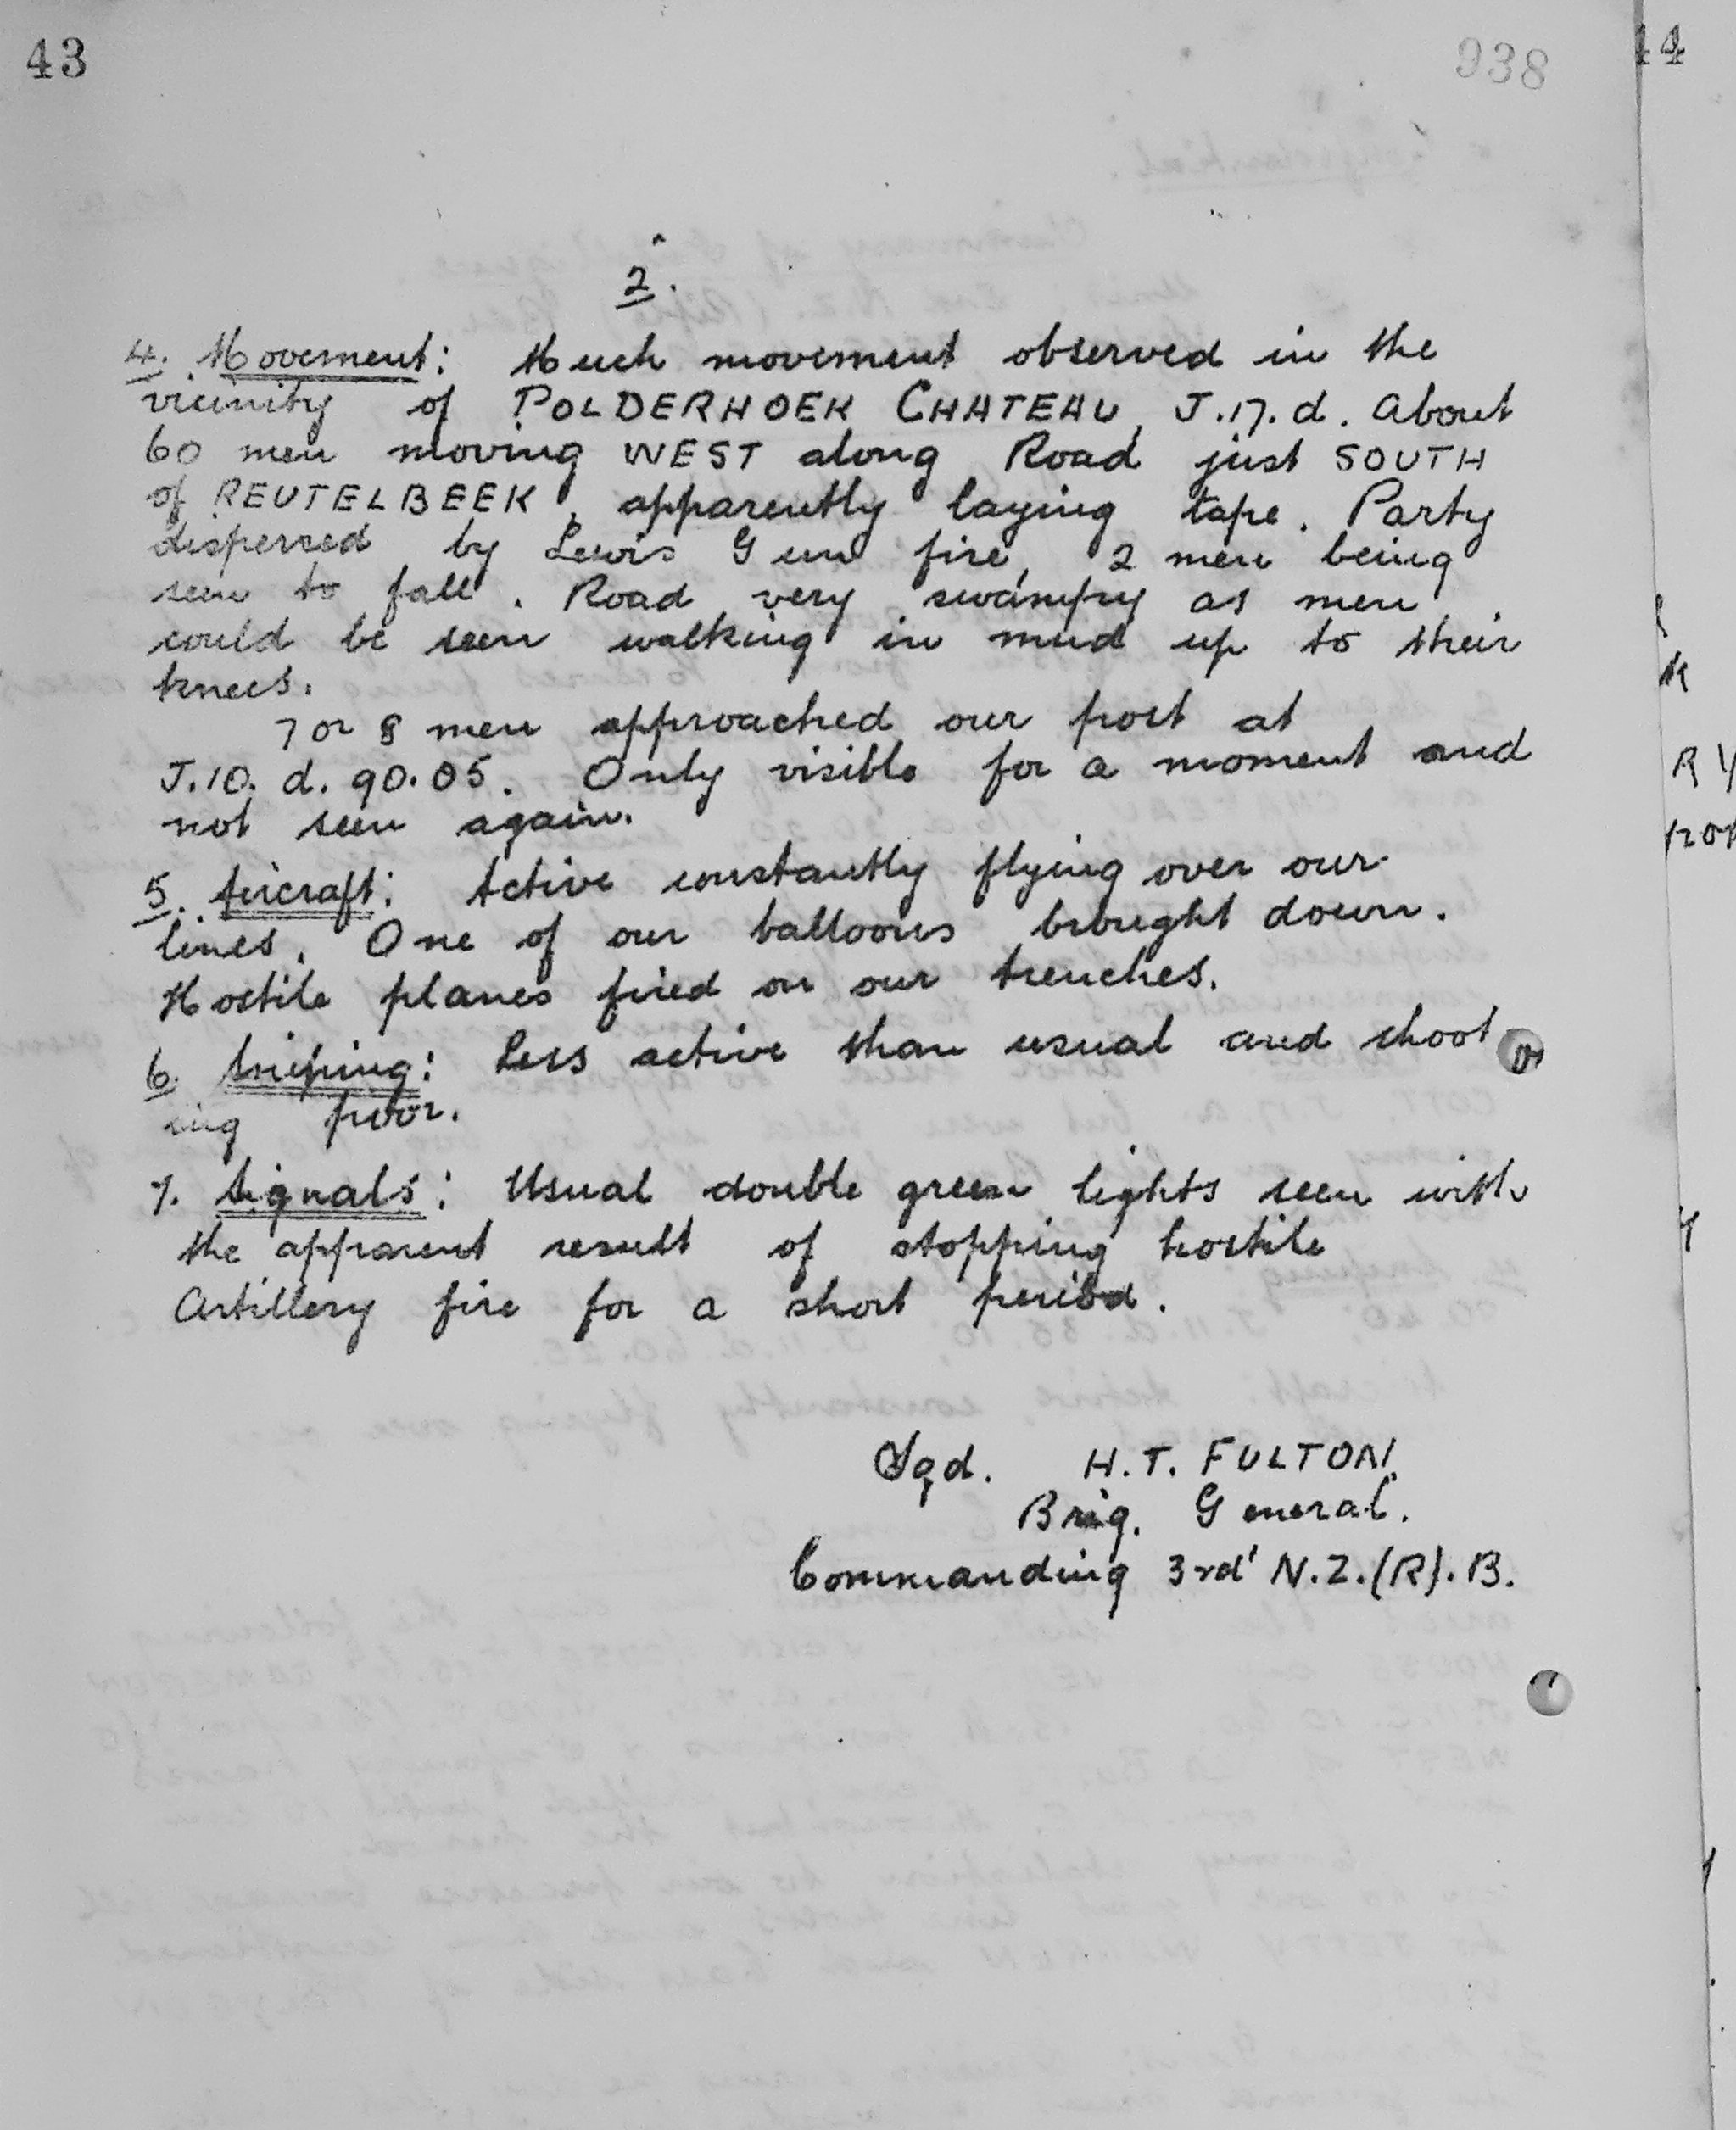 43
938
44
2.
4. Movement: Much movement observed in the
vicinity of POLDERHOEK CHATEAU, J.17.d. About
60 men moving WEST along Road just SOUTH
of REUTELBEEK, apparently laying tape. Party
dispersed by Lewis Gun fire, 2 men being
seen to fall. Road very swampy as men
could be seen walking in mud up to their
knees.
7 or 8 men approached our post at
J.10. d. 90.05. Only visible for a moment and
not seen again.
5. Aircraft: Active constantly flying over our
lines. One of our balloons brought down.
Hostile planes fired on our trenches.
6. Sniping: Less active than usual and shoot
ing poor.
7. Signals: Usual double green lights seen with
the apparent result of stopping hostile
Artillery fire for a short period.
Sgd. H.T. FULTON.
Brig. General.
Commanding 3rd N.Z.(R).B.